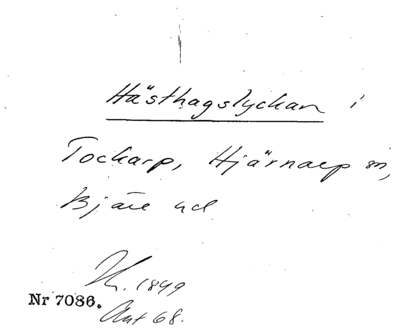 Hästhagslyckan i
Tockarp, Hjärnarp sn,
Bjäre hd
Lk. 1849
Nr 7086.
Avt 68.